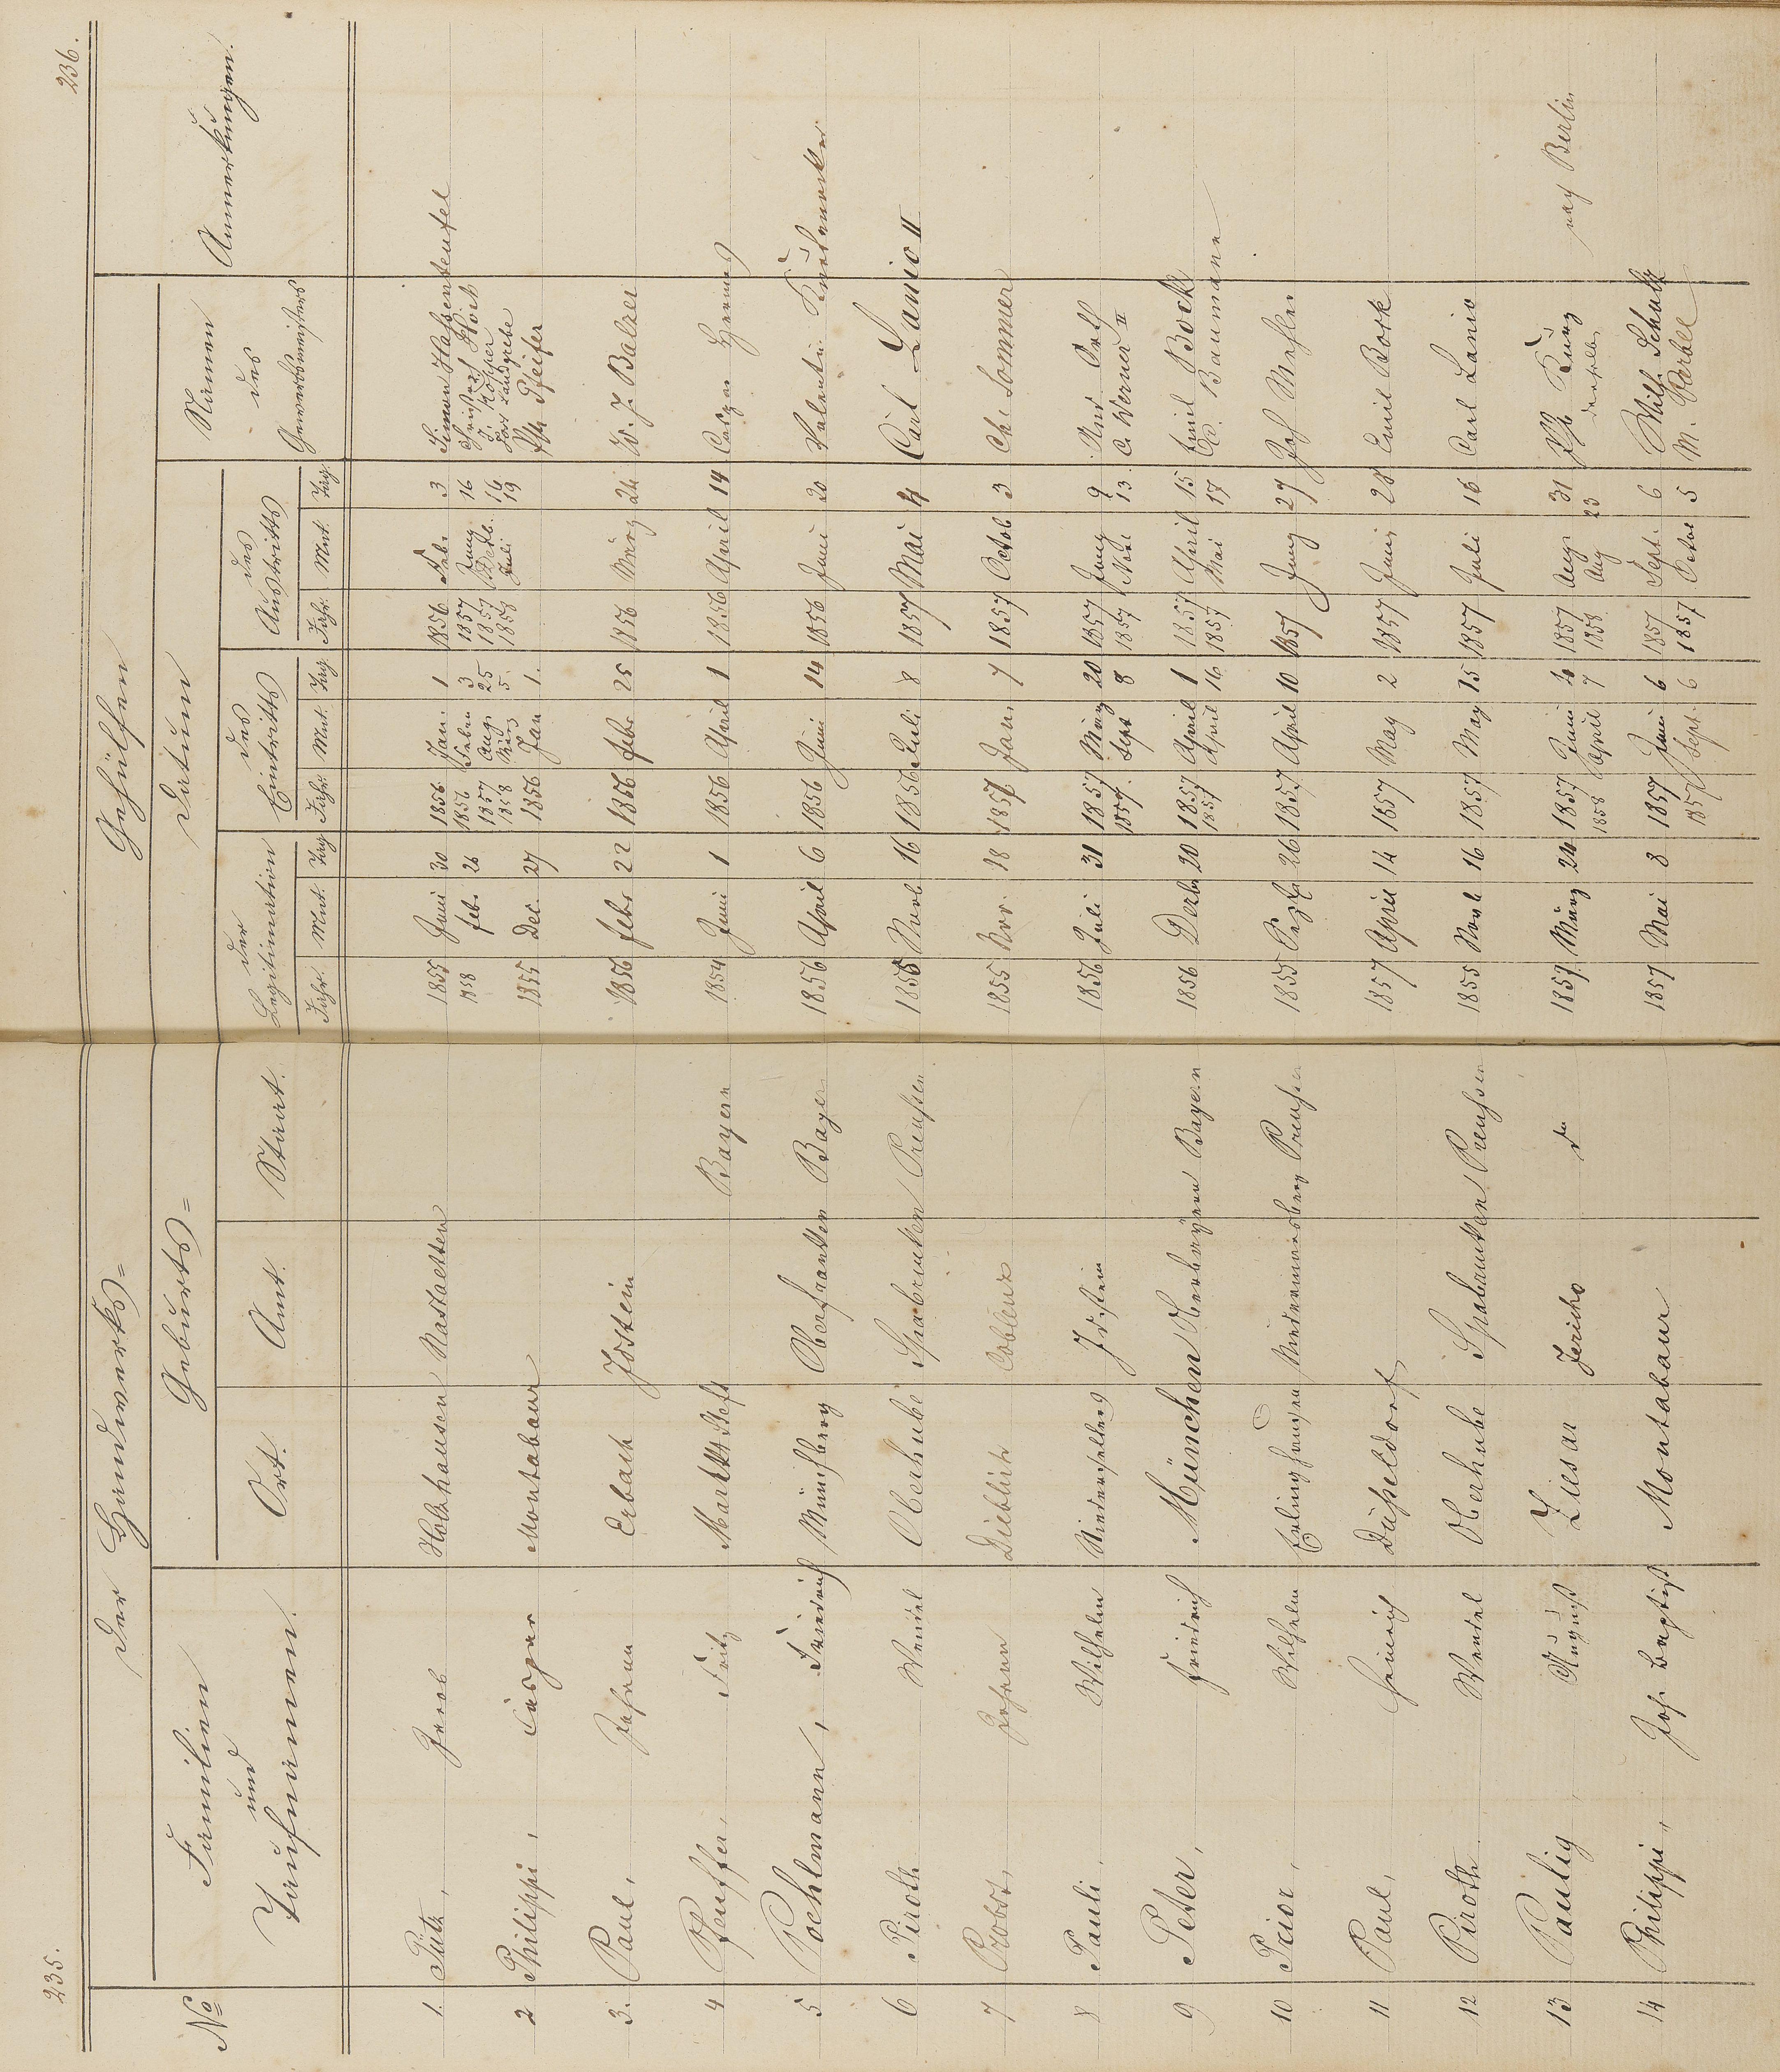 235.
236.
Der Handwerks-
Gehülfen
No
Familien
und
Taufnamen.
Geburts-
Ort.
Amt.
Staat.
Datum
der
Legitimation
des
Eintritts
des
Austritts
Jahr. Mnt. Tag
Jahr. Mnt. Tag
Jahr. Mnt. Tag.
Namen
des
Gewerbsmeisters
Anmerkungen.
1. Pütz, Jacob Holzhausen Nastaetten 1855 Juni 30 1856 Jan. 1 1856 Febr 3 Simon Hassenteufel
1858 febr 26 1856 3 1857 Juny 16
1857 Aug. 25 1857 16
1858 5. 1858 Juli 19
2 Philippi, Casper Montabaur 1855 Dec. 27 1856 Jan 1. Pfeifer
3. Paul, Johann Erbach Idstein 1856 febr 22 1856 febr 25 1856 März 24 W. J. Balzer
4 Pfeuffer, Fritz Marktsteft Bayern 1854 Juni 1 1856 April 1 1856 April 14
5 Poehlmann, Friedrich Münchberg Oberfranken Bayer 1856 April 6 1856 Juni 14 1856 Juni 20 Valentin
6 Piroth Wendel Oberhube Spabrücken Preußen 1855 Novb 16 1856 Juli 8 1857 Mai 4 Carl Lanio II
7 Probst, Johann Dieblich Coblenz 1855 Nov. 18 1857 Jan. 7 1857 Octob 3 Ch. Sommer
8 Pauli, Wilhelm Niederselters Idstein 1856 Juli 31 1857 März 20 1857 Juny 9
1857. Sept 8 1857 13. C. Werner II
9 Peter, Friedrich München Oberbayern Bayern 1856 Decbr 20 1857 April 1 1857 April 15 Emil Bock
1857 April 16 1857 Mai 17 Baumann
10 Prior, Wilhelm Preußen 1855 26 1857 April 10 1857 Juny 27
11 Paul, Heinrich Düsseldorf 1857 April 14 1857 May 2 1857 Juni 28 Emil Bock
12 Piroth Wendel Oberhube Spabrücken Preussen 1855 Novb 16 1857 May 15 1857 Juli 16 Carl Lanio
13 Paulig August Ziesar Jericho do 1857 März 24 1857 Juni 4 1857 Aug 31 nach Berlin
1858 April 7 1858 Aug 23 derselbe
14 Philippi, Joh. Baptist Montabaur 1857 Mai 8 1857 Juni 6 1857 Sept. 6 Wilh. Schultz
1857 Sept. 6 1857 5